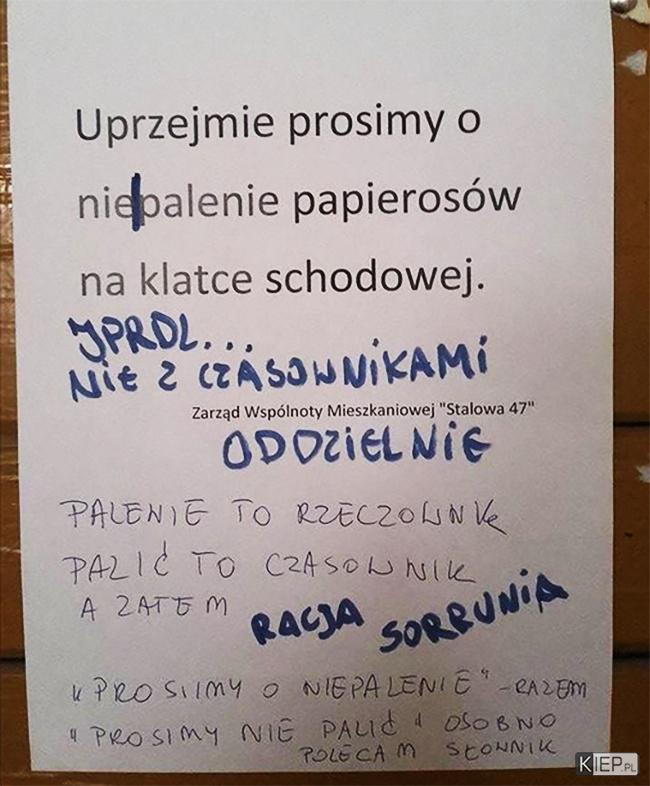 Uprzejmie prosimy o
nie|palenie papierosów
na klatce schodowej.
JPRDL...
NIE Z CZASOWNIKAMI
Zarząd Wspólnoty Mieszkaniowej "Stalowa 47"
ODDZIELNIE
PALENIE TO RZECZOWNIK
PALIĆ TO CZASOWNIK
A ZATEM
RACJA SORRUNIA
"PROSIIMY O NIEPALENIE" - RAZEM
"PROSIMY NIE PALIĆ" OSOBNO
POLECAM SŁOWNIK
KIEP.PL